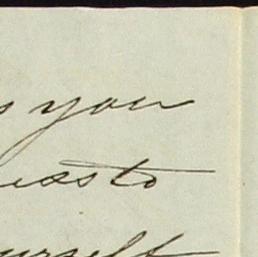 s you
ess to
urself